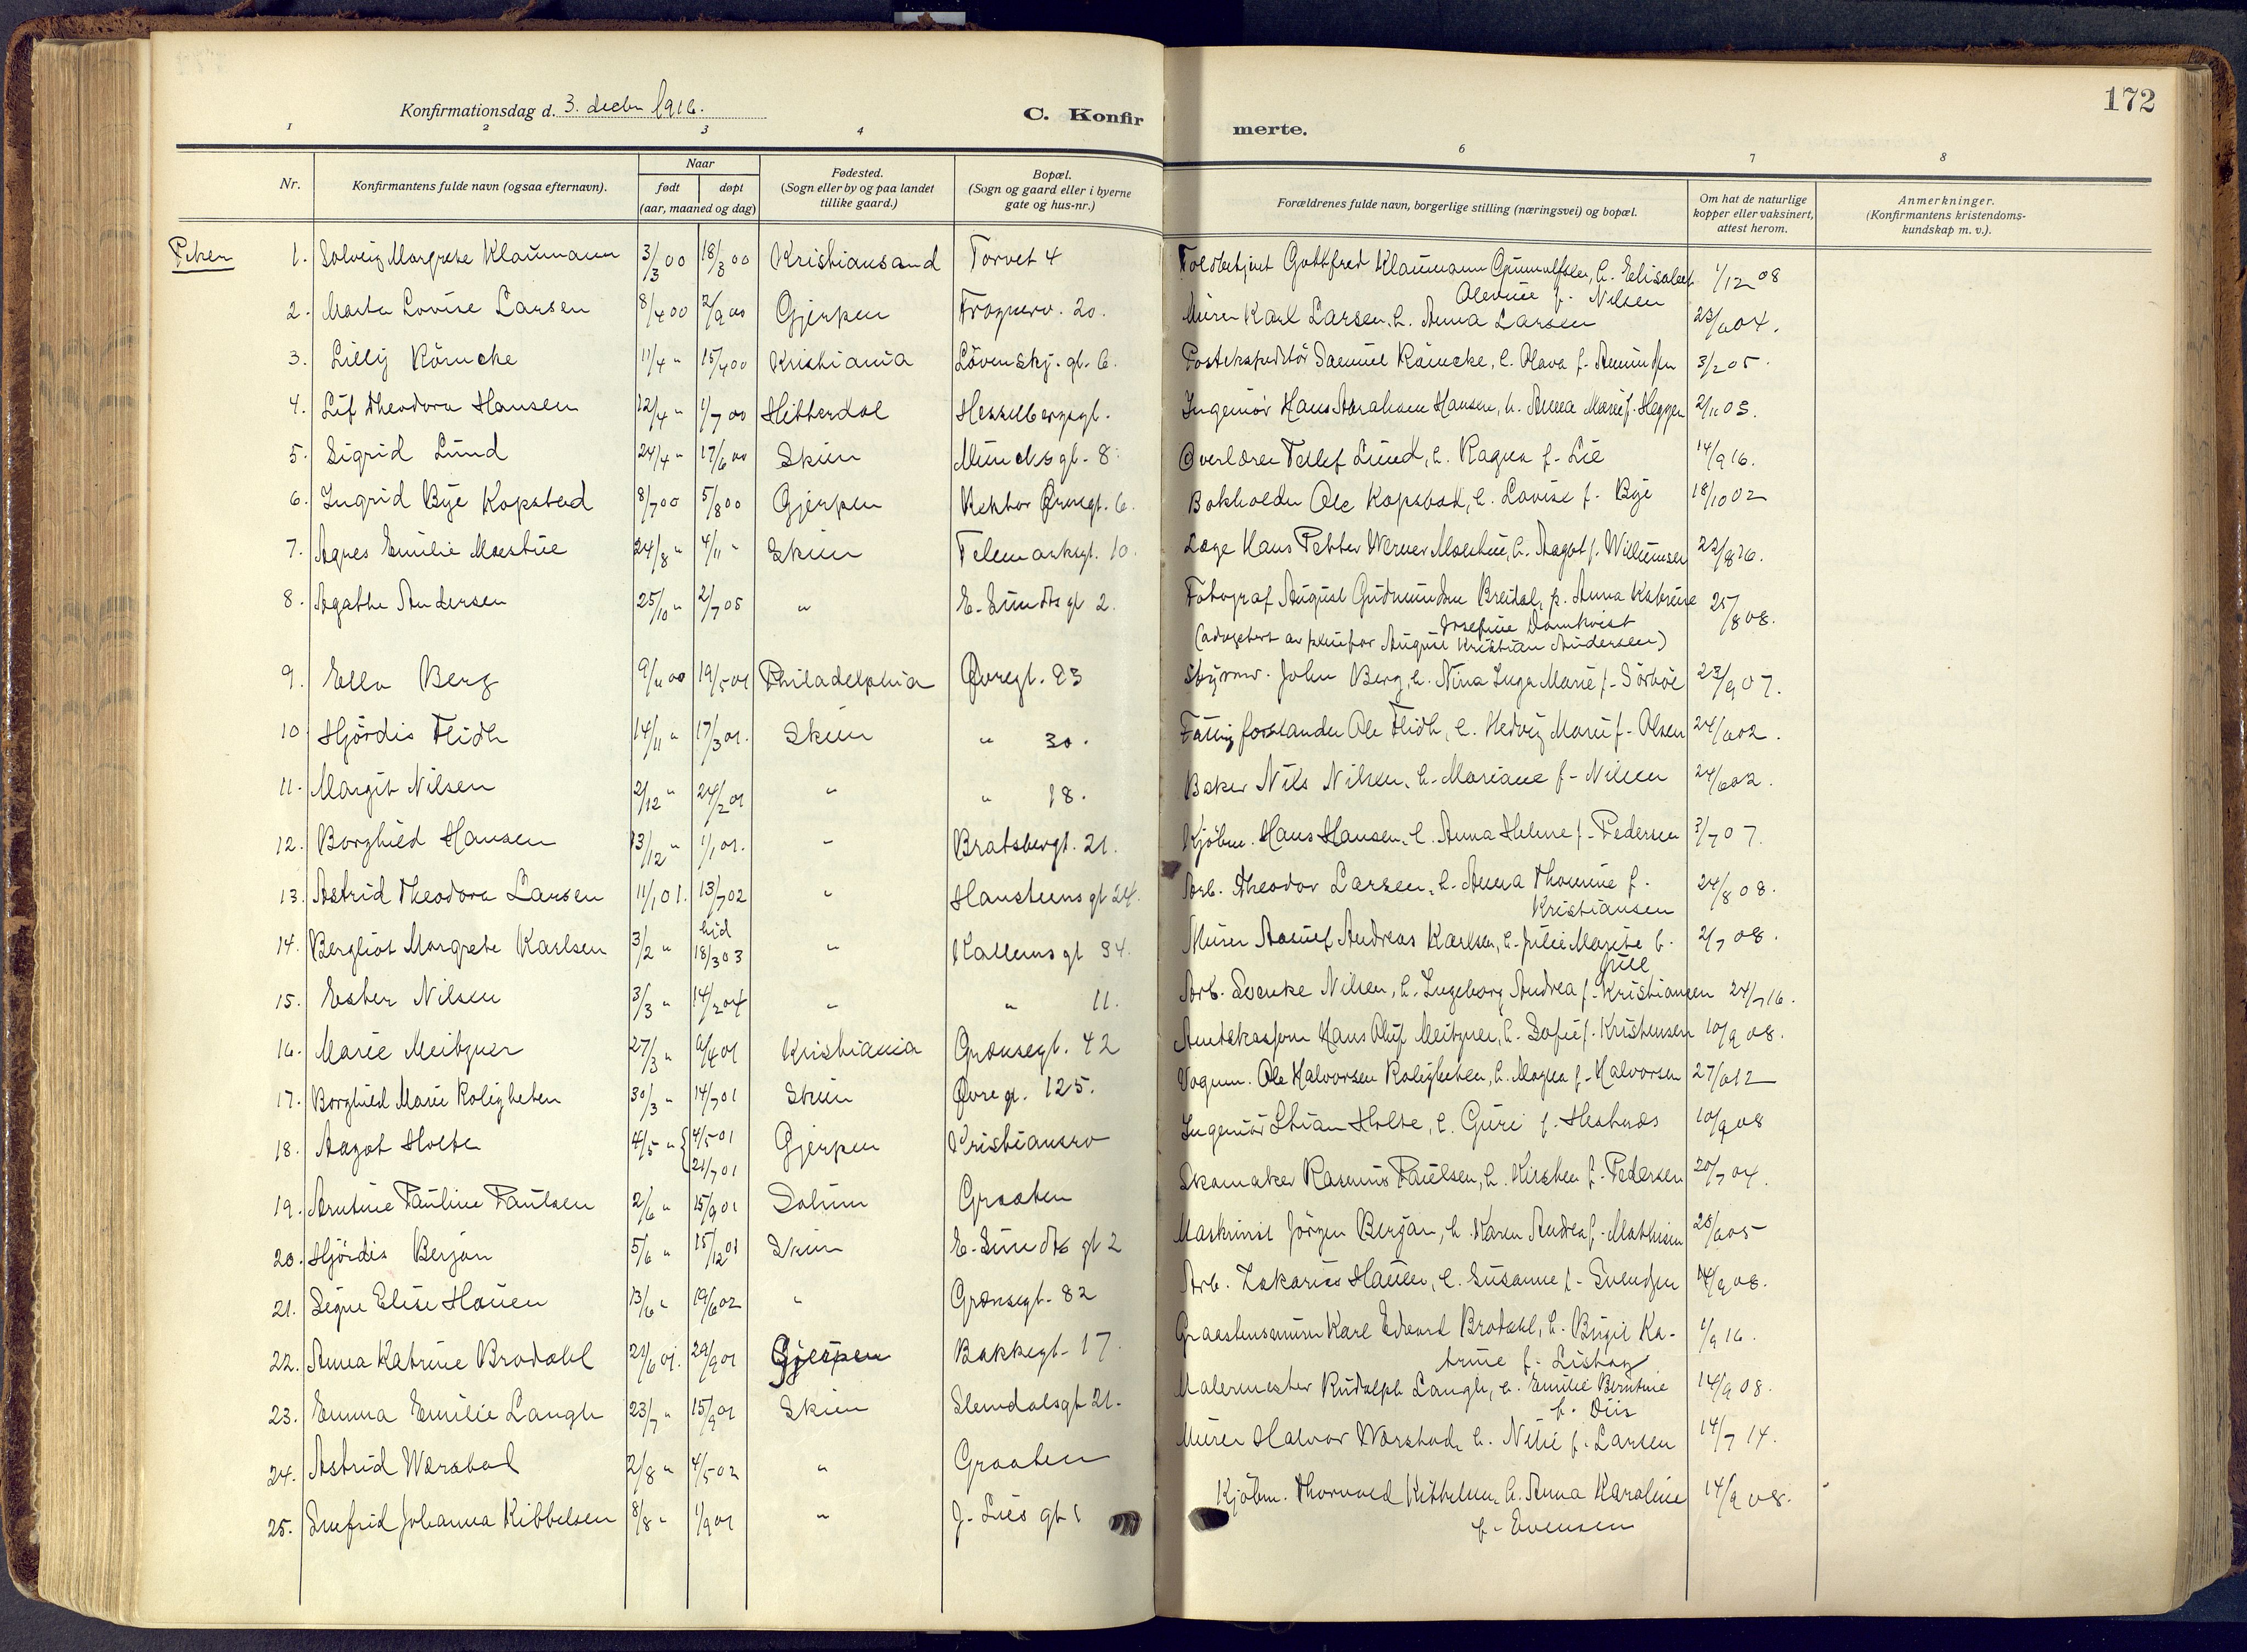 172
Konfirmationsdag d. 3. decbr 1916.
C. Konfirmerte.
1 2 3 4 6 7 8
Nr.
Konfirmantens fulde navn (ogsaa efternavn).
Naar
født døpt
(aar, maaned og dag)
Fødested.
(Sogn eller by og paa landet
tillike gaard.)
Bopæl.
(Sogn og gaard eller i byerne
gate og hus-nr.)
Forældrenes fulde navn, borgerlige stilling (næringsvei) og bopæl.
Om hat de naturlige
kopper eller vaksinert,
attest herom.
Anmerkninger.
(Konfirmantens kristendoms-
kundskap m. v.).
Piker
1. Solveig Margrete Klaumann 3/3 00 18/3 00 Kristiansand Torvet 4 Toldbetjent Gottfred Klaumann Gunnulfsen, h. Elisabet 1/12 08
Olevine f. Nilsen
2. Marta Lovise Larsen 8/4 00 2/9 00 Gjerpen Frognerv. 20. Murer Karl Larsen, h. Anna Larsen 23/6 04.
3. Lilly Römcke 11/4 " 15/4 00 Kristiania Lövenskj. gt. 6. Postekspeditör Samuel Römcke, h. Olava f. Amundsen 3/2 05.
4. Lif Theodora Hansen 12/4 " 1/7 00 Hitterdal Hesselbergsgt. Ingeniör Hans Abraham Hansen, h. Anna Marie f. Heggen 2/11 03.
5. Sigrid Lund 24/4 " 17/6 00 Skien Muncks gt. 8. Overlærer Tellef Lund, h. Ragna f. Lie 14/9 16.
6. Ingrid Bye Kopstad 8/7 00 5/8 00 Gjerpen Rektor Ørnsgt. 6. Bokholder Ole Kopstad, h. Lovise f. Bye 18/10 02
7. Agnes Emilie Mæstue 24/8 " 4/11 " Skien Telemarksgt. 10. Læge Hans Petter Werner Mæstue, h. Aagot f. Willumsen 22/8 26.
8. Agathe Andersen 25/10 " 2/7 05 " E. Sundts gt 2. Fotograf August Gudmundsen Breidal, p. Anna Katrine 25/8 08.
Josefine Damkvist
(adoptert av pleiefar August Kristian Andersen)
9. Ella Berg 9/11 00 19/5 01 Philadelphia Øvregt. 93 Styrm. John Berg, h. Nina Inga Marie f. Sörböe 23/9 07.
10. Hjördis Flidh 14/11 " 17/3 01. Skien " 30. Fattigforstander Ole Flidh, h. Hedvig Marie f. Olsen 24/6 02.
11. Margit Nilsen 2/12 " 24/2 01 " " 18. Baker Nils Nilsen, h. Mariane f. Nilsen 24/6 02.
12. Borghild Hansen 13/12 " 1/1 01. " Bratsbergt. 21. Kjöbm. Hans Hansen, h. Anna Helene f. Pedersen 3/7 07.
13. Astrid Theodora Larsen 11/1 01. 13/7 02 " Hansteens gt 24. Arb. Theodor Larsen, h. Anna Thomine f. 24/8 08.
Kristiansen
14. Bergliot Margrete Karlsen 3/2 " 18/3 03 " Kallums gt 94. Murer Andreas Karlsen, h. Julie Marite f. 2/7 08.
15. Ester Nilsen 3/3 " 14/2 04 " " 11. Arb. Svenke Nilsen, h. Ingeborg Andrea f. Kristiansen 24/7 16.
16. Marie Meitzner 27/3 " 6/4 01 Kristiania Grænsegt. 42 Amtskasserer Hans Oluf Meitzner, h. Sofie f. Kristensen 10/9 08.
17. Borghild Marie Roligheten 30/3 " 14/7 01 Skien Øvregt. 125. Vognm. Ole Halvorsen Roligheten, h. Magna f. Halvorsen 27/6 12
18. Aagot Holte 4/5 " 4/5 01 Gjerpen Kristiansro Ingeniör Stian Holte, h. Guri f. Hestnæs 10/9 08
21/7 01
19. Arntine Pauline Paulsen 2/6 " 15/9 01 Solum Graaten Skomaker Rasmus Paulsen, h. Kirsten f. Pedersen 20/7 04.
20. Hjördis Berjan 5/6 " 15/12 01 Skien E. Sundts gt 2 Maskinist Jörgen Berjan, h. Karen Andrea f. Mathisen 28/6 05
21. Signe Elise Hauen 13/6 " 19/6 02 " Grænsegt. 82 Arb. Zakarias Hauen, h. Susanne f. Svendsen 14/9 08.
22. Anna Katrine Brodahl 21/6 01. 29/9 01 Gjerpen Bakkegt. 17 Graastensmurer Karl Edvard Brodahl, h. Birgit Ka- 1/9 16.
trine f. Listang
23. Emma Emilie Langh 23/7 " 15/9 01 Skien Slemdalsgt 21. Malermester Rudolph Langh, h. Emilie Berntine 14/9 08.
f. Diis
24. Astrid Wærstad 2/8 " 4/5 02 " Graaten Murer Halvor Wærstad, h. Nilie f. Larsen 14/7 14.
25. Snefrid Johanna Kittelsen 8/8 " 1/9 01 " J. Lies gt 1 Kjöbm. Thorvald Kittelsen, h. Anna Karoline 14/9 08.
f. Evensen